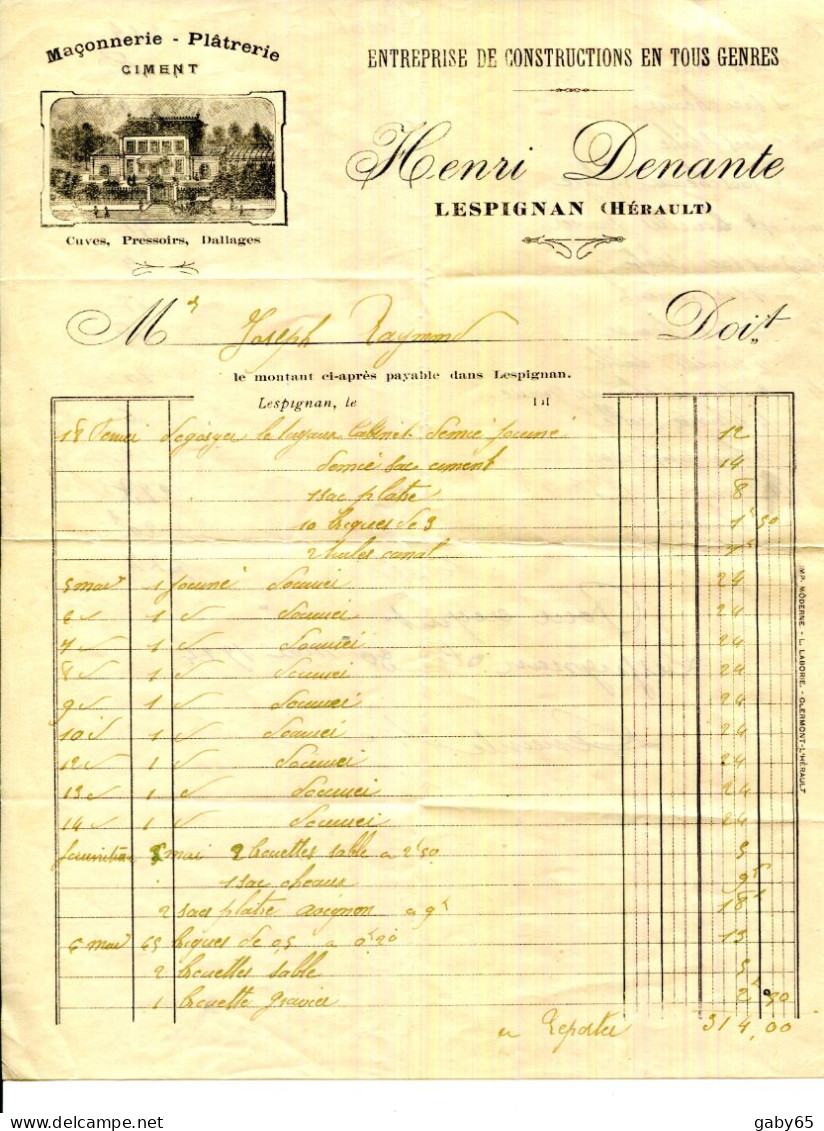 Maçonnerie - Plâtrerie
CIMENT
Cuves, Pressoirs, Dallages
ENTREPRISE DE CONSTRUCTIONS EN TOUS GENRES
Henri Denante
LESPIGNAN (HÉRAULT)
Mr Joseph Raymond Doit
le montant ci-après payable dans Lespignan.
Lespignan, le
18 le tuyaux Cabinet demie journé 12
demie sac ciment 14
1 sac platre 8
10 briques de 3 1f 50
2 tuiles canal
5 mars 1 journé 24
6 1 24
7 1 24
8 1 24
9 1 24
10 1 24
12 1 24
13 1 24
14 1 24
fourniture 5 mai 2 brouettes sable a 2f50 5
1 sac chaux 9f
2 sacs platre avignon a 9f 18f
6 mars 65 briques de 0,5 a 0f20 13
2 brouettes sable 5
1 brouette gravier 2f50
a Reporter 314,00
IMP. MODERNE - L. LABORIE - CLERMONT-L'HÉRAULT
gaby65